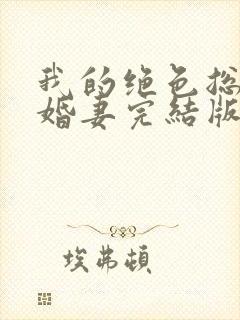 我的绝色总
婚妻完結版
埃弗頓